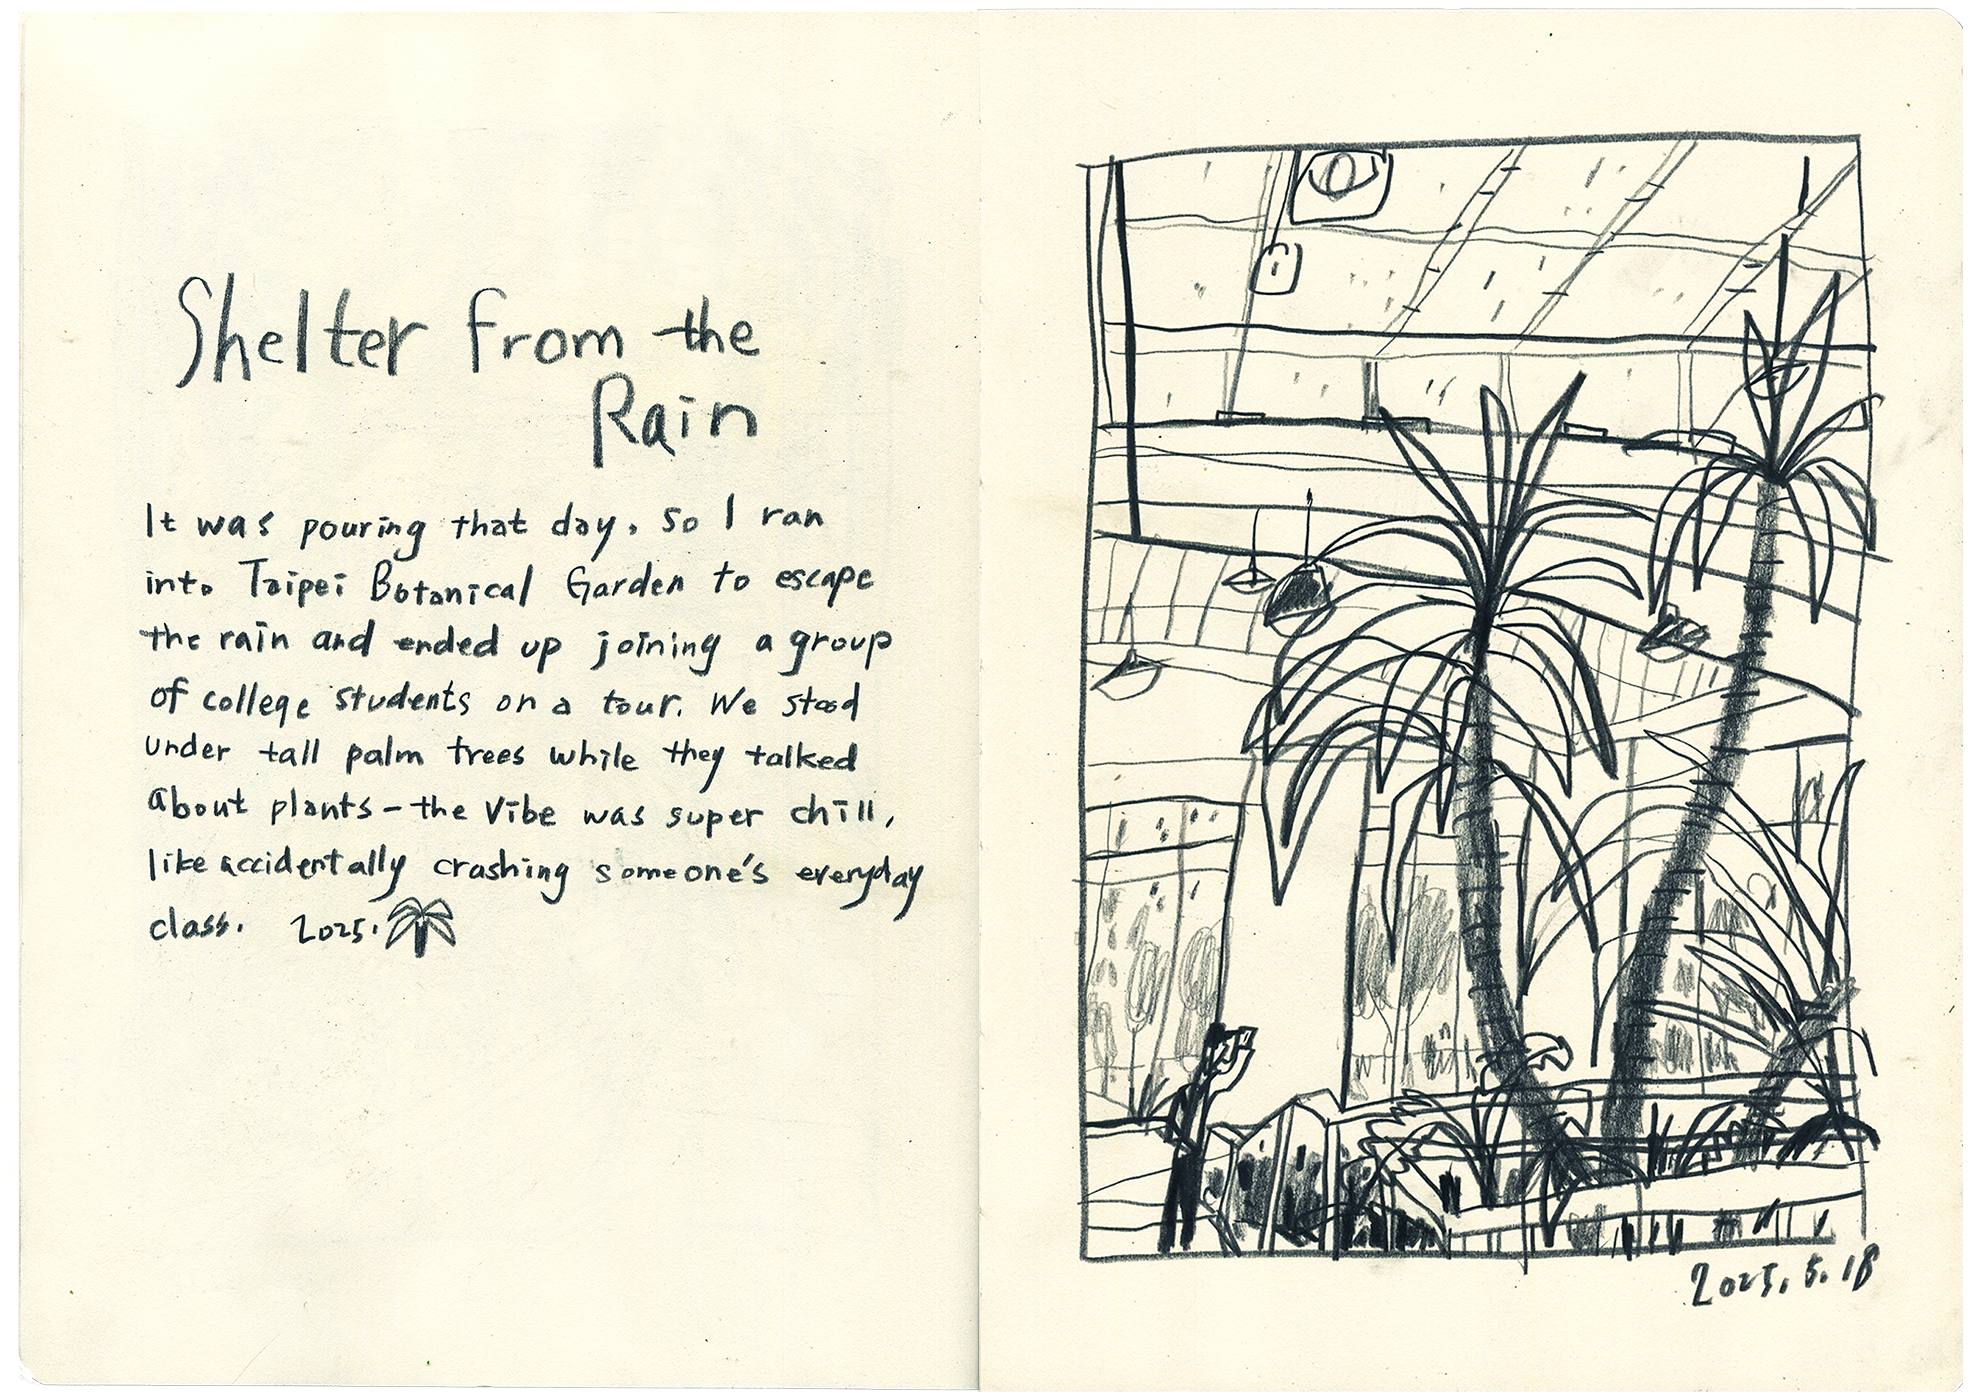 Shelter from the
Rain
It was pouring that day, so I ran
into Taipei Botanical Garden to escape
the rain and ended up joining a group
of college students on a tour. We stood
under tall palm trees while they talked
about plants - the vibe was super chill,
like accidentally crashing someone's everyday
class. 2025.
2025.5.18